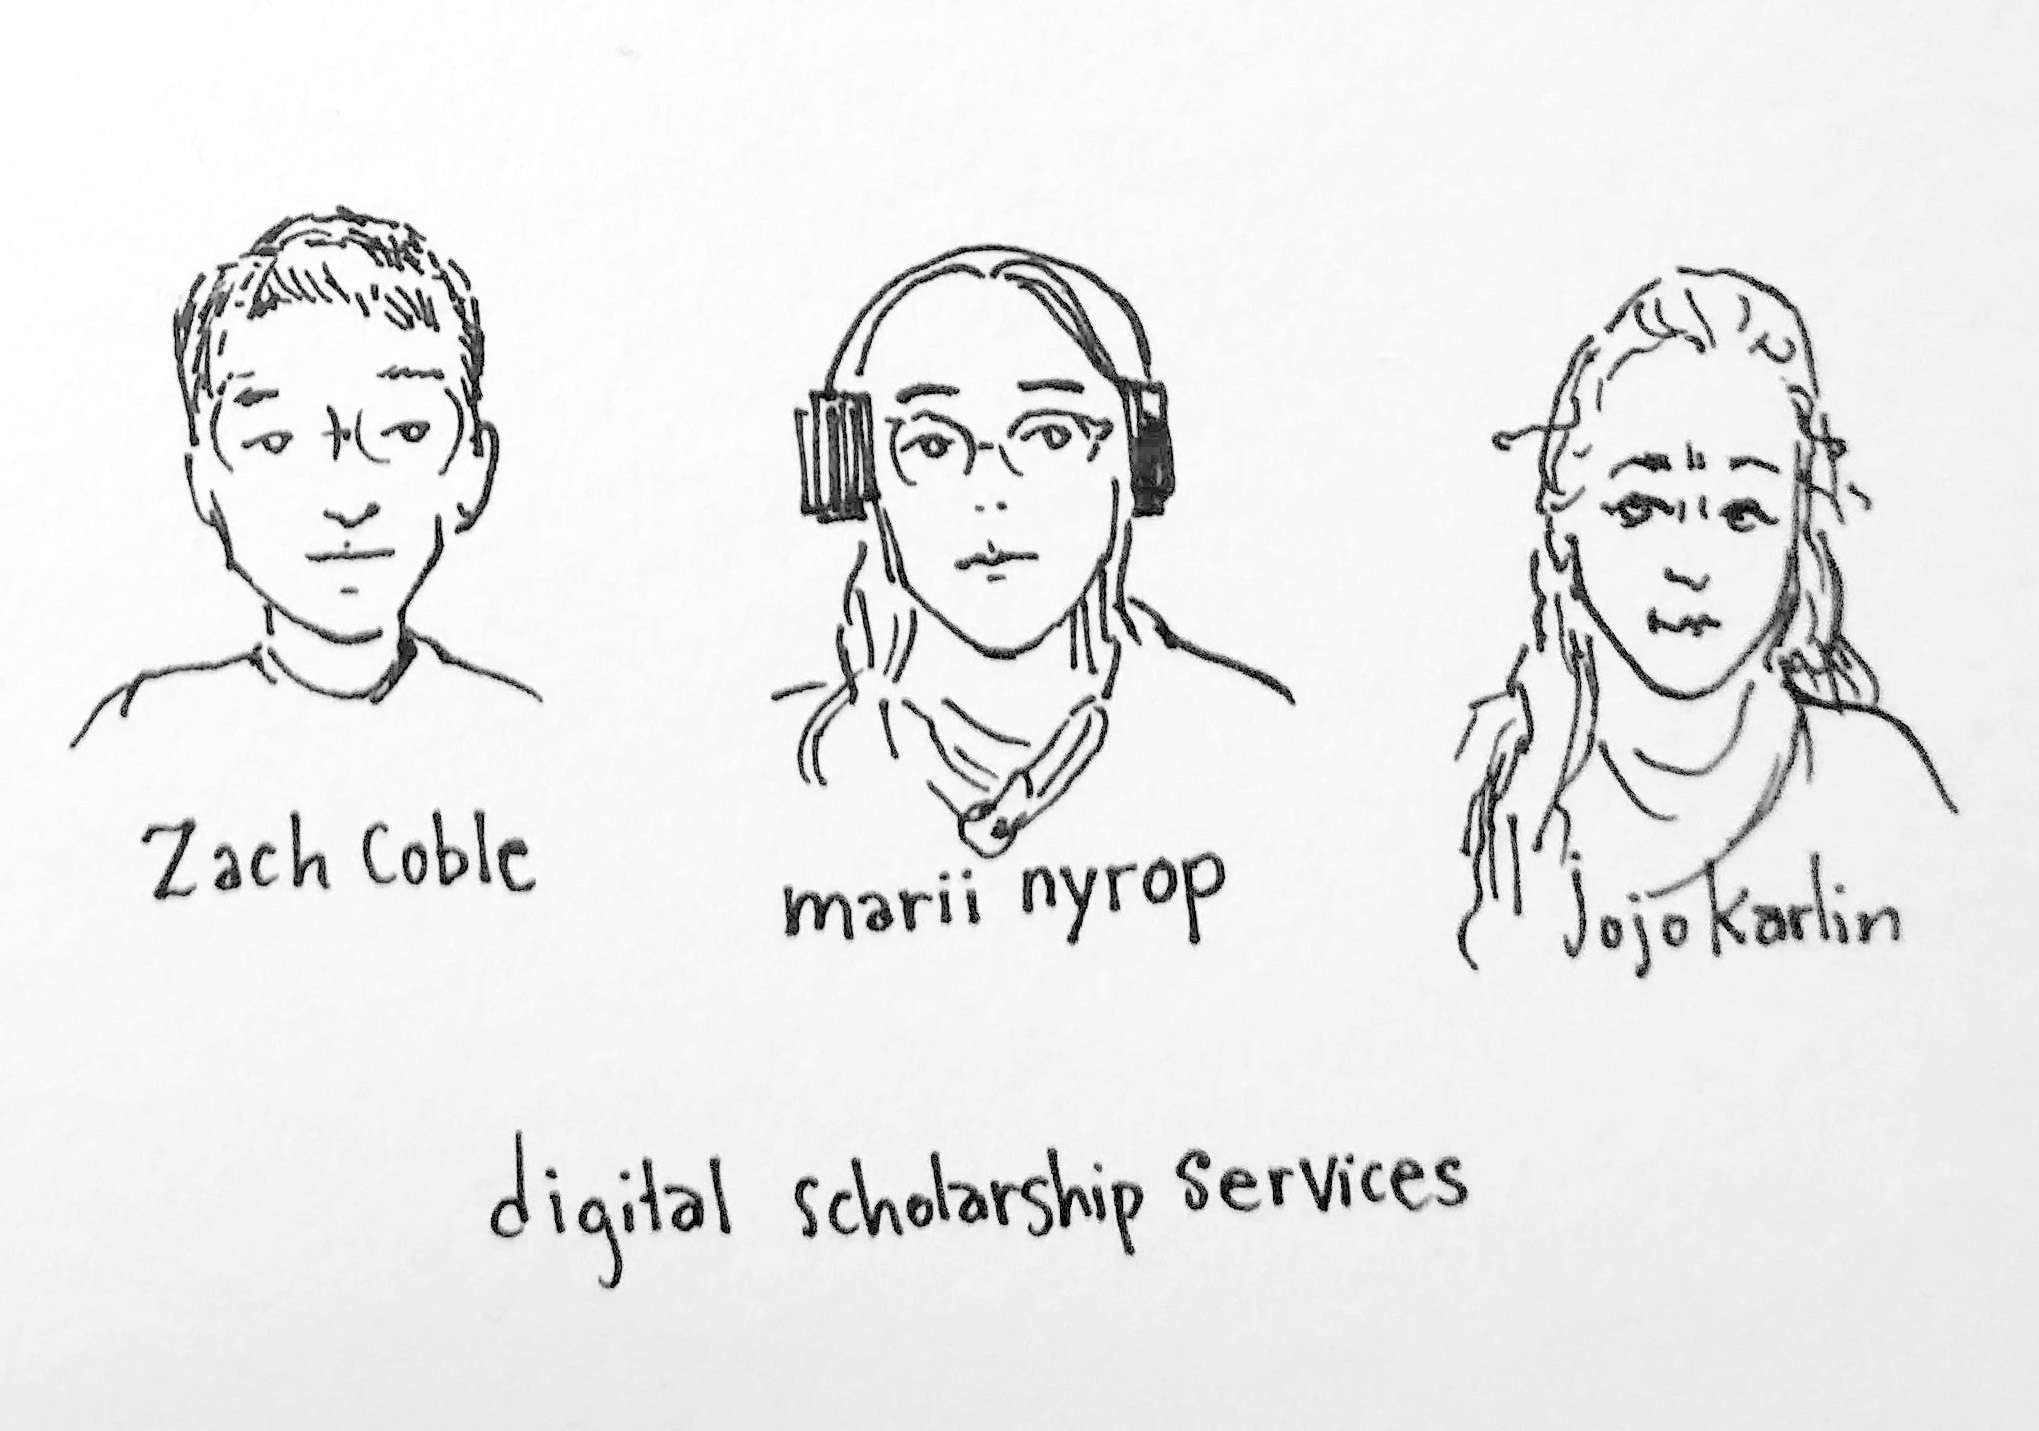 Zach Coble
marii nyrop
jojo karlin
digital scholarship services